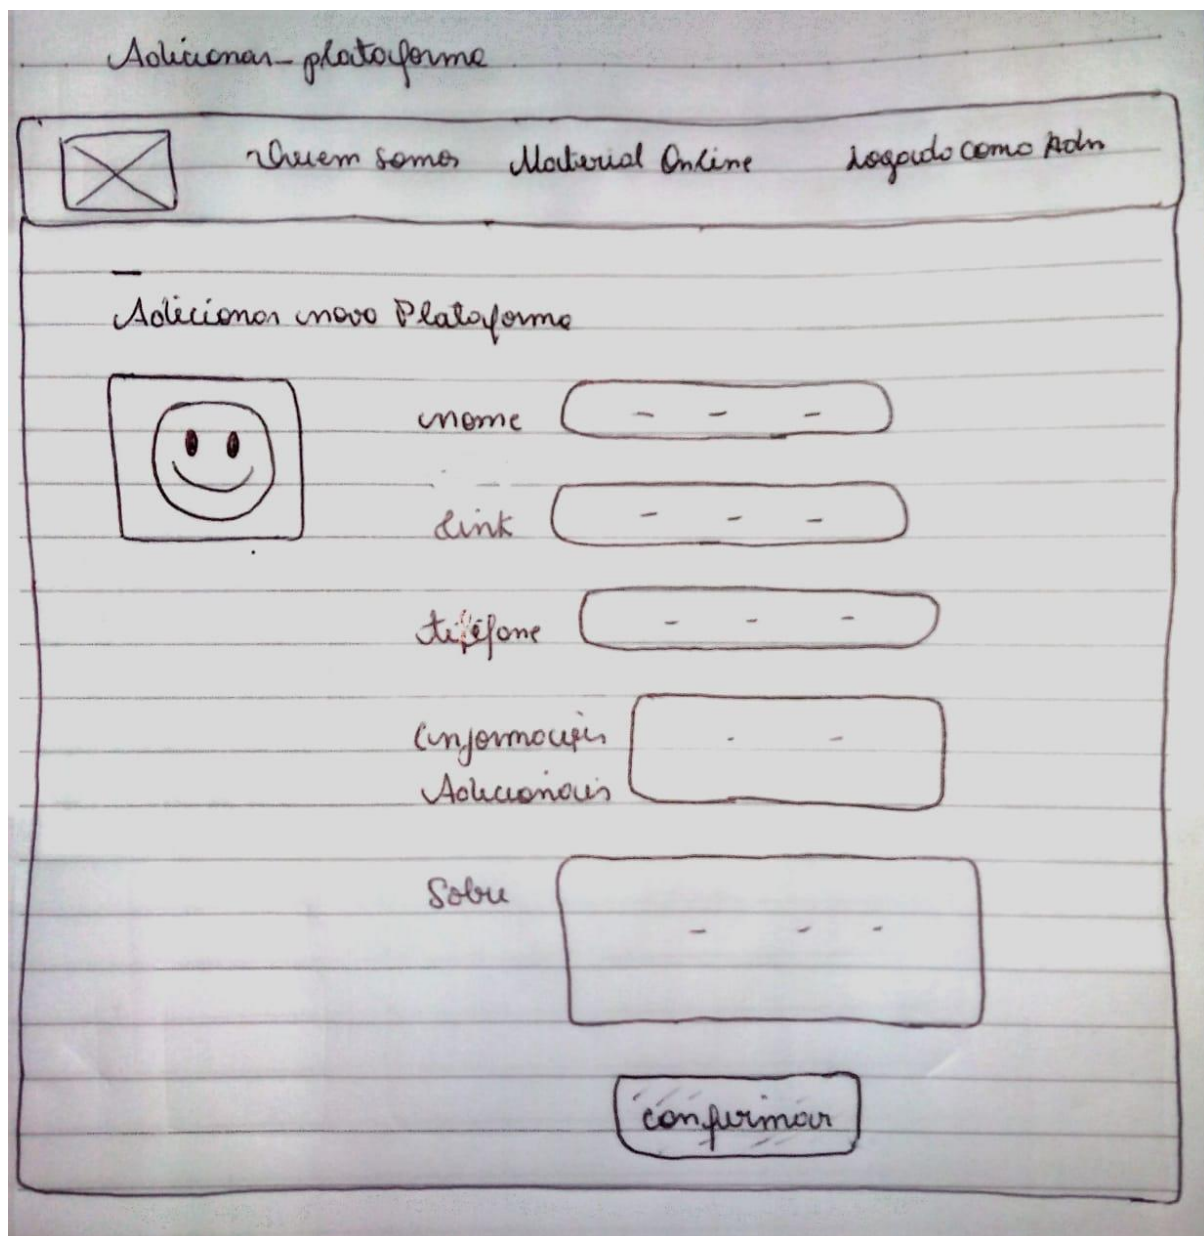 Adicionar-plataforma
Quem somos Material Online Logado como Adm
Adicionar novo Plataforma
nome
link
telefone
Informações
Adicionais
Sobre
confirmar